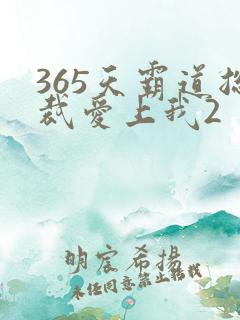 365天霸道总
裁爱上我2
明宸希扬
未经同意禁止转载